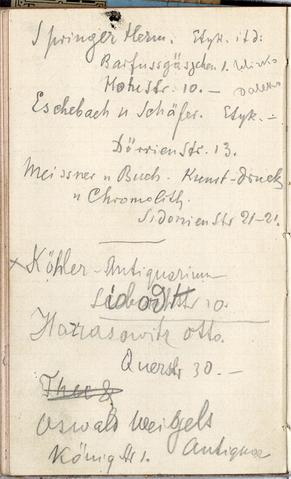 Springer Herm. Etyk. itd:
Barfussgässchen 1. blisko
Hohestr. 10. – daleko
Eschebach u Schäfer. Etyk. –
Dörrienstr. 13.
Meissner u Buch. Kunst-druck
u Chromolith.
Sidonienstr 21–21.
× Köhler – Antiquarium
10.
Harrasowitz Otto.
Querstr 30. –
Oswald Weigels
König str 1. Antiquar